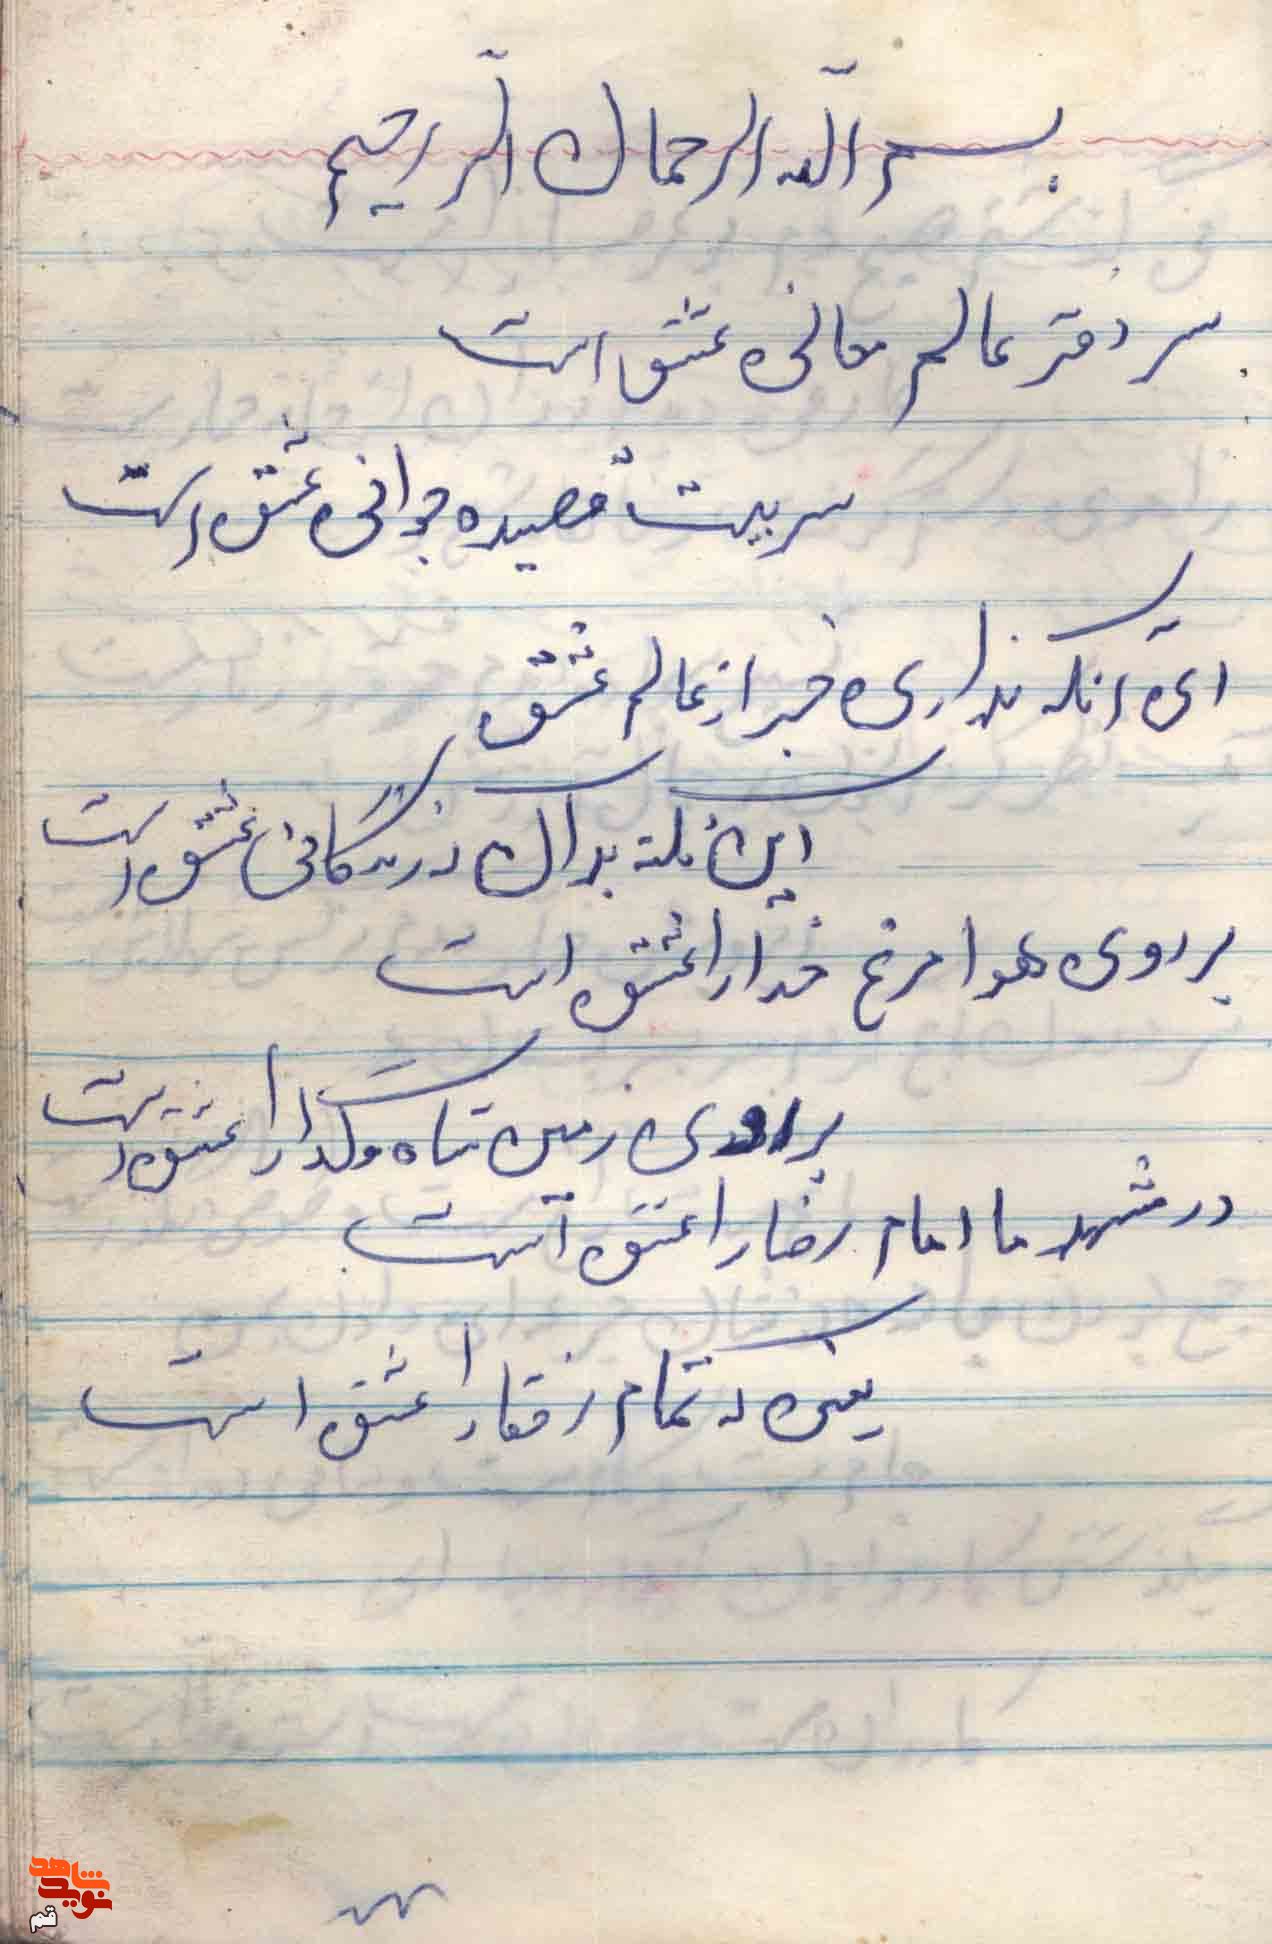 بسم الله الرحمان الرحیم
سر دفتر عالم معانی عشق است
سر بیت قصیده جوانی عشق است
ای آنکه نداری خبر از عالم عشق
این نکته بدان که زندگانی عشق است
بر روی هوا مرغ خدا را عشق است
بر روی زمین شاه و گدا را عشق است
در مشهد ما امام رضا را عشق است
یعنی که تمام رفقا را عشق است
نوید شاهد
قم